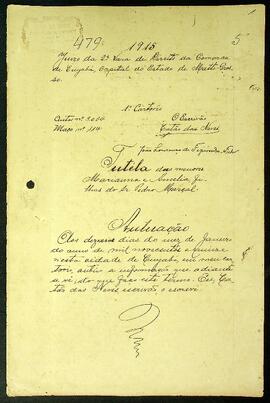 479. 1915 5
Juizo da 2ª Vara de Direito da Comarca
de Cuyabá, Capital do Estado de Matto Gros-
so.
1º Cartorio
O Escrivão
Maço nº 114
João Lourenço de Figueiredo
Tutela dos menores
Marianna e Amelia, fi
lhos do Sr Pedro Marçal.
Autuação
Aos dezenove dias do mez de Janeiro
do anno de mil novecentos e quinze
nesta cidade de Cuyabá, em meu car-
torio, autúo a informação que adiante
se vê, do que faço este termo. Eu,
das Neves escrivão, o escrevi.